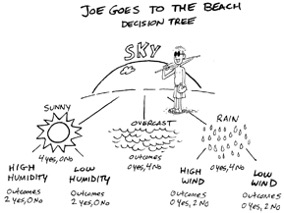 JOE GOES TO THE BEACH
DECISION TREE
SKY
SUNNY
4 yes, 0 No
OVERCAST
outcomes
0 yes, 4 No
RAIN
0 yes, 4 No
HIGH
HUMIDITY
Outcomes
2 yes, 0 No
LOW
HUMIDITY
Outcomes
2 yes, 0 No
HIGH
WIND
Outcomes
0 yes, 2 No
LOW
WIND
Outcomes
0 yes, 2 No